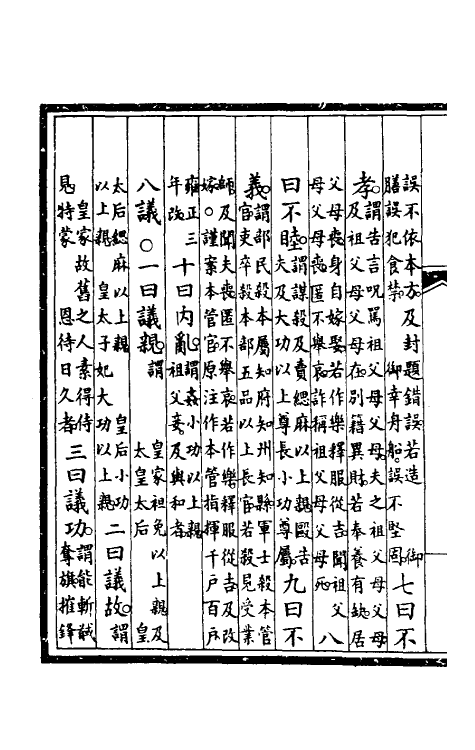 誤不依本方及封題錯誤若造 御
膳誤犯食禁 御幸舟船誤不堅固 七曰不
孝 謂告言呪罵祖父母父母夫之祖父母父母
及祖父母父母在別籍異財若奉養有缺居
父母喪身自嫁娶若作樂釋服從吉聞祖父
母父母喪匿不舉哀詐稱祖父母父母死 八
曰不睦 謂謀殺及賣緦麻以上親毆告
夫及大功以上尊長小功尊屬 九曰不
義 謂部民殺本屬知府知州知縣軍士殺本管
官吏卒殺本部五品以上長官若殺見受業
師及聞夫喪匿不舉哀若作樂釋服從吉及改
嫁○謹案本管官原注作本管指揮千戶百戶
雍正三年改 十曰內亂 謂姦小功以上親
祖父妾及與和者
八議○一曰議親 謂 皇家袒免以上親及
太皇太后 皇
太后緦麻以上親 皇后小功
以上親 皇太子妃大功以上親 二曰議故 謂
皇家故舊之人素得侍
見特蒙 恩待日久者 三曰議功 謂能斬馘
奪旗摧鋒